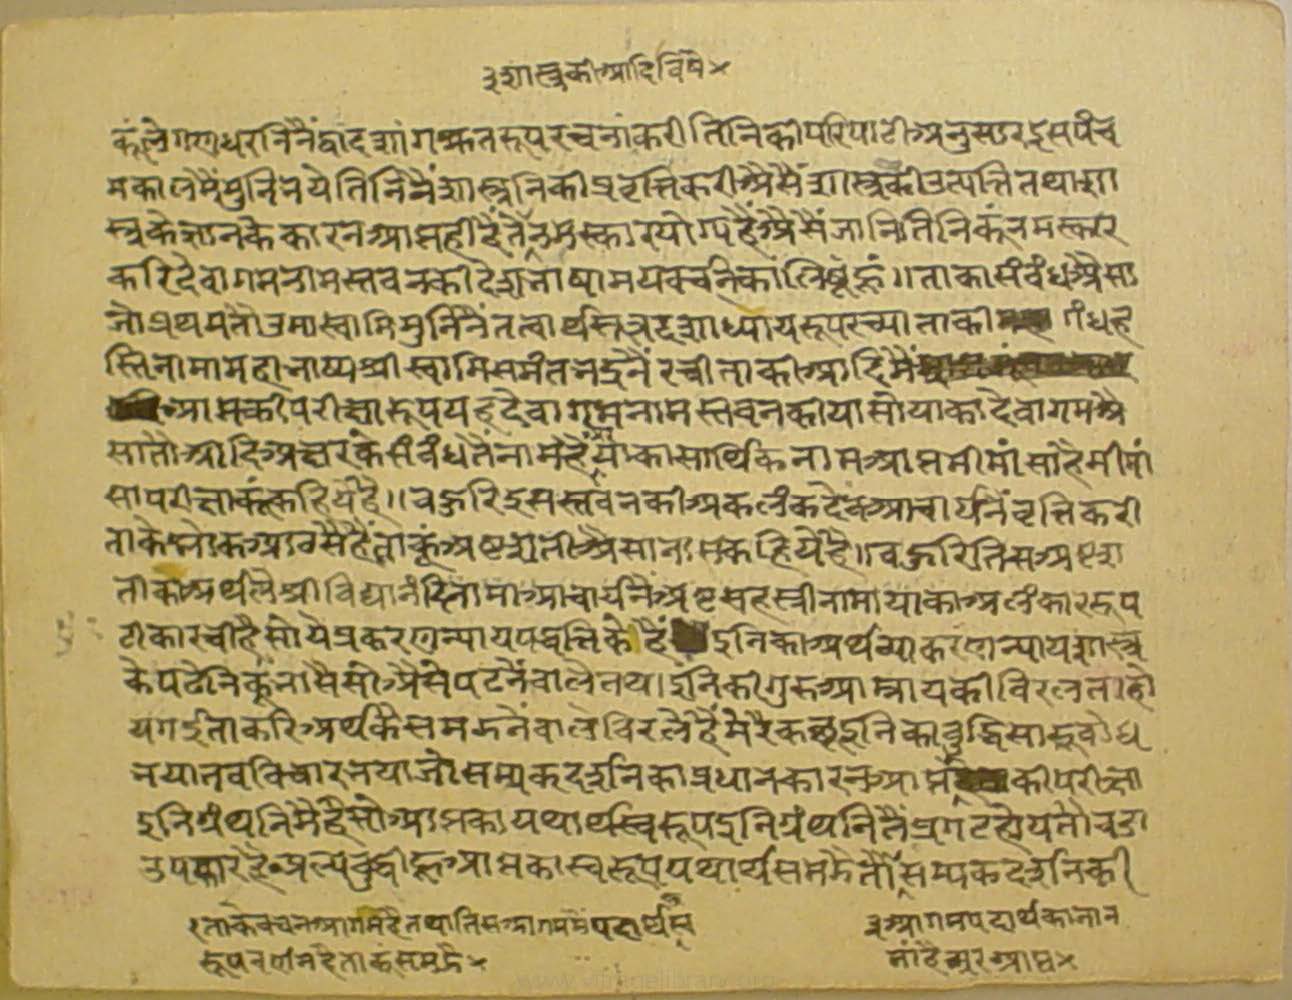 ३ शास्त्रकी आदिविषै ×
कूं लेगणधरनिनैं द्वादशांगश्रुतरूप रचना करी तिनिकी परिपाटी अनुसार इस पंच
मकालमैं मुनि भये तिनिनैं शास्त्रनिकी प्रवृत्ति करी अैसैं शास्त्रकी उत्पत्ति तथा शा
स्त्रके ज्ञानके कारन आप्त ही हैं तैं नमस्कार योग्य हैं अैसैं जानि तिनिकूं नमस्कार
करि देवागमनामस्तवनकी देशभाषामय वचनिका लिषूं हूं ।। ताका संबंध अैसा
जो प्रथम तौ उमास्वामि मुनिनैं तत्वार्थसूत्र दशाध्यायरूप रच्या ताकी गंधह
स्तिनामा महाभाष्य श्री स्वामिसमंतभद्रनैं रची ताकी आदिमैं
आप्तकी परीक्षारूप यह देवागमनाम स्तवन कीया सो याका देवागम अै
सा तो आदि अक्षरके संबंधतैं नाम है याका सार्थिक नाम आप्तमीमांसा है मीमां
सा परीक्षाकूं कहिये है ।। बहुरि इस स्तवनकी अकलंकदेव आचार्यनैं वृत्ति करी
ताके श्लोक आठसै हैं ताकूं अष्टशती अैसा नाम कहिये है ।। बहुरि तिस अष्टश
तीका अर्थ लै श्री विद्यानंदिनामा आचार्यनैं अष्टसहस्रीनामा याका अलंकाररूप
टीका रची है सो ये प्रकरण न्यायपद्धतिके हैं इनिका अर्थ व्याकरण न्यायशास्त्र
के पढेनिकूं भासै सो अैसे पढनेवाले तथा इनिकी गुरुआम्नायकी विरलता हो
य गई ताकरि अर्थके समझनेवाले विरले हैं मेरै कछू इनिका बुद्धिसारू बोध
भया तब विचार भया जो सम्यक्दर्शनका प्रधान कारन आप्तकी परीक्षा
इनि ग्रंथनिमैं है सो आप्तका यथार्थस्वरूप इनि ग्रंथनितैं प्रगट होय तौ बडा
उपकार है अल्पबुद्धी हू आप्तका स्वरूप यथार्थ समझै तौ सम्यकदर्शनकी
१ ताके वचन आगम है तथा तिस आगममैं पदार्थस्व
रूप वर्णन है ताकूं समझै ×
३ आगम पदार्थका नाम
नांहै अर आप्त ×